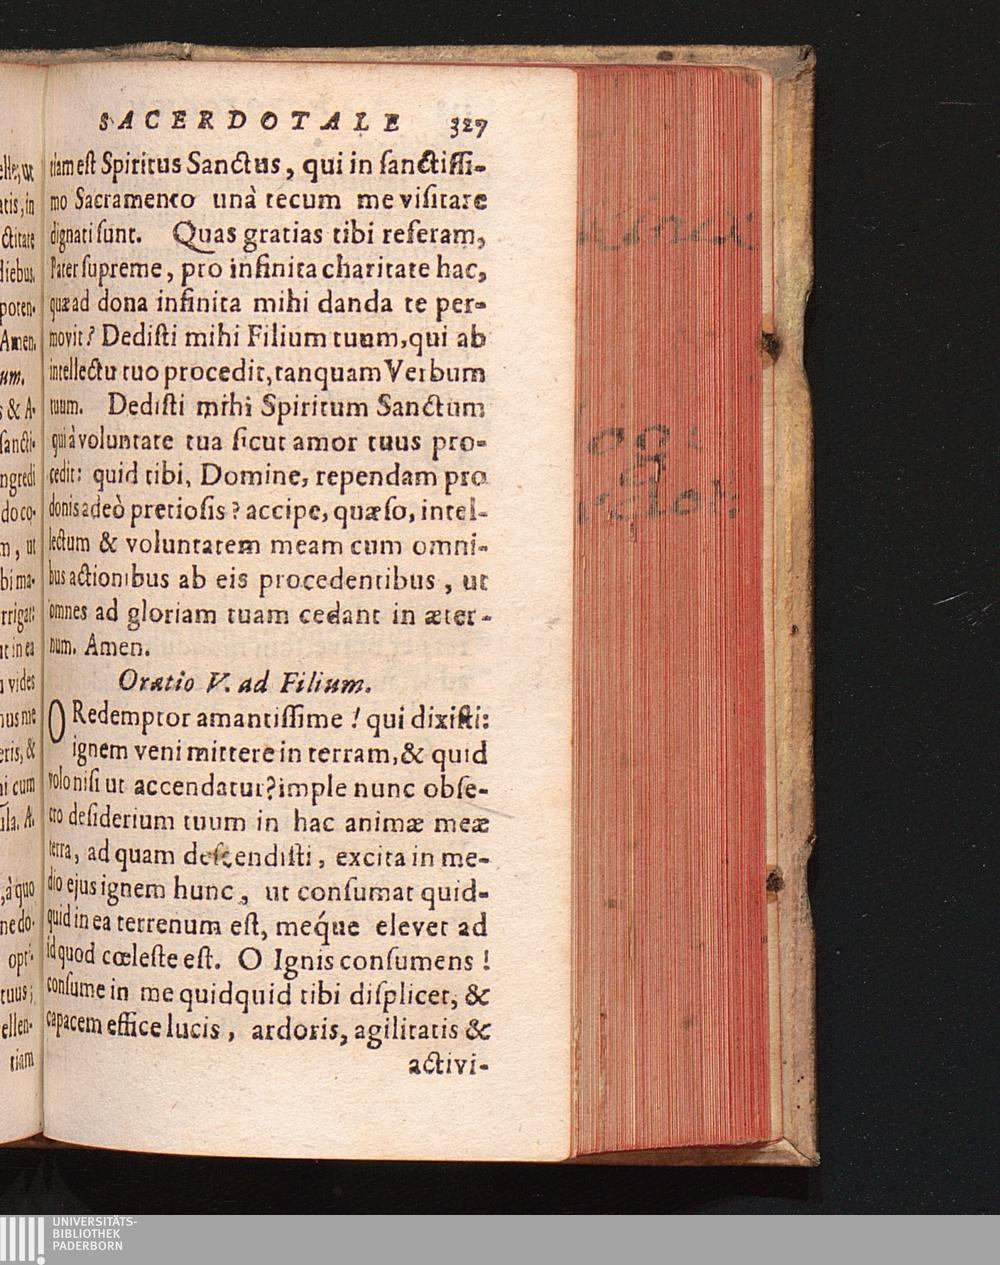 SACERDOTALE 327
tiam est Spiritus Sanctus, qui in sanctissi-
mo Sacramento unà tecum me visitare
dignati sunt. Quas gratias tibi referam,
Pater supreme, pro infinita charitate hac,
quæ ad dona infinita mihi danda te per-
movit? Dedisti mihi Filium tuum, qui ab
intellectu tuo procedit, tanquam Verbum
tuum. Dedisti mihi Spiritum Sanctum
qui à voluntate tua sicut amor tuus pro-
cedit: quid tibi, Domine, rependam pro
donis adeò pretiosis? accipe, quæso, intel-
lectum & voluntatem meam cum omni-
bus actionibus ab eis procedentibus, ut
omnes ad gloriam tuam cedant in æter-
num. Amen.
Oratio V. ad Filium.
O Redemptor amantissime! qui dixisti:
ignem veni mittere in terram, & quid
volo nisi ut accendatur? imple nunc obse-
cro desiderium tuum in hac animæ meæ
terra, ad quam descendisti, excita in me-
dio ejus ignem hunc, ut consumat quid-
quid in ea terrenum est, meque elevet ad
id quod cœleste est. O Ignis consumens!
consume in me quidquid tibi displicet, &
capacem effice lucis, ardoris, agilitatis &
activi-
UNIVERSITÄTS-
BIBLIOTHEK
PADERBORN